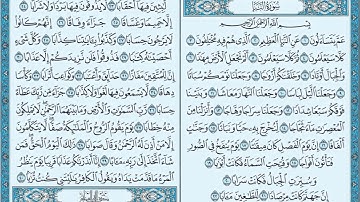 سُورَةُ النَّبَإِ
بِسْمِ اللَّهِ الرَّحْمَٰنِ الرَّحِيمِ
عَمَّ يَتَسَاءَلُونَ ١ عَنِ النَّبَإِ الْعَظِيمِ ٢ الَّذِي هُمْ فِيهِ مُخْتَلِفُونَ ٣
كَلَّا سَيَعْلَمُونَ ٤ ثُمَّ كَلَّا سَيَعْلَمُونَ ٥ أَلَمْ نَجْعَلِ الْأَرْضَ مِهَادًا ٦
وَالْجِبَالَ أَوْتَادًا ٧ وَخَلَقْنَاكُمْ أَزْوَاجًا ٨ وَجَعَلْنَا نَوْمَكُمْ سُبَاتًا ٩
وَجَعَلْنَا اللَّيْلَ لِبَاسًا ١٠ وَجَعَلْنَا النَّهَارَ مَعَاشًا ١١ وَبَنَيْنَا
فَوْقَكُمْ سَبْعًا شِدَادًا ١٢ وَجَعَلْنَا سِرَاجًا وَهَّاجًا ١٣ وَأَنزَلْنَا مِنَ
الْمُعْصِرَاتِ مَاءً ثَجَّاجًا ١٤ لِّنُخْرِجَ بِهِ حَبًّا وَنَبَاتًا ١٥ وَجَنَّاتٍ
أَلْفَافًا ١٦ إِنَّ يَوْمَ الْفَصْلِ كَانَ مِيقَاتًا ١٧ يَوْمَ يُنفَخُ فِي الصُّورِ
فَتَأْتُونَ أَفْوَاجًا ١٨ وَفُتِحَتِ السَّمَاءُ فَكَانَتْ أَبْوَابًا ١٩
وَسُيِّرَتِ الْجِبَالُ فَكَانَتْ سَرَابًا ٢٠
إِنَّ جَهَنَّمَ كَانَتْ مِرْصَادًا ٢١ لِّلطَّاغِينَ مَآبًا ٢٢
لَّابِثِينَ فِيهَا أَحْقَابًا ٢٣ لَّا يَذُوقُونَ فِيهَا بَرْدًا وَلَا شَرَابًا ٢٤
إِلَّا حَمِيمًا وَغَسَّاقًا ٢٥ جَزَاءً وِفَاقًا ٢٦ إِنَّهُمْ كَانُوا
لَا يَرْجُونَ حِسَابًا ٢٧ وَكَذَّبُوا بِآيَاتِنَا كِذَّابًا ٢٨ وَكُلَّ شَيْءٍ
أَحْصَيْنَاهُ كِتَابًا ٢٩ فَذُوقُوا فَلَن نَّزِيدَكُمْ إِلَّا عَذَابًا ٣٠
إِنَّ لِلْمُتَّقِينَ مَفَازًا ٣١ حَدَائِقَ وَأَعْنَابًا ٣٢ وَكَوَاعِبَ أَتْرَابًا ٣٣ وَكَأْسًا
دِهَاقًا ٣٤ لَّا يَسْمَعُونَ فِيهَا لَغْوًا وَلَا كِذَّابًا ٣٥ جَزَاءً مِّن رَّبِّكَ عَطَاءً
حِسَابًا ٣٦ رَّبِّ السَّمَاوَاتِ وَالْأَرْضِ وَمَا بَيْنَهُمَا الرَّحْمَٰنِ لَا يَمْلِكُونَ
مِنْهُ خِطَابًا ٣٧ يَوْمَ يَقُومُ الرُّوحُ وَالْمَلَائِكَةُ صَفًّا لَّا يَتَكَلَّمُونَ
إِلَّا مَنْ أَذِنَ لَهُ الرَّحْمَٰنُ وَقَالَ صَوَابًا ٣٨ ذَٰلِكَ الْيَوْمُ الْحَقُّ فَمَن شَاءَ
اتَّخَذَ إِلَىٰ رَبِّهِ مَآبًا ٣٩ إِنَّا أَنذَرْنَاكُمْ عَذَابًا قَرِيبًا يَوْمَ يَنظُرُ
الْمَرْءُ مَا قَدَّمَتْ يَدَاهُ وَيَقُولُ الْكَافِرُ يَا لَيْتَنِي كُنتُ تُرَابًا ٤٠